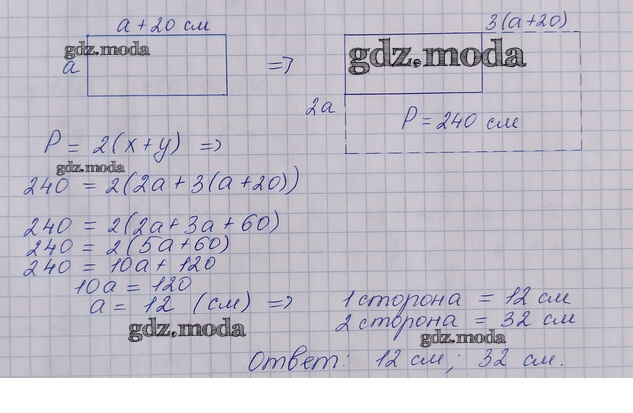 a + 20 см
3(a+20)
gdz.moda
gdz.moda
a
=>
2a
P = 240 см
P = 2(x+y) =>
gdz.moda
240 = 2(2a+3(a+20))
240 = 2(2a+3a+60)
240 = 2(5a+60)
240 = 10a + 120
10a = 120
a = 12 (см) => 1 сторона = 12 см
2 сторона = 32 см
gdz.moda
gdz.moda
Ответ: 12 см; 32 см.